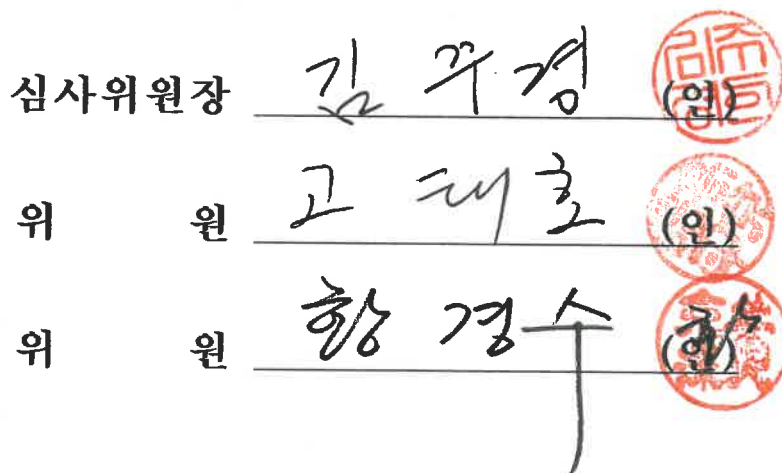 심사위원장 김 주경 (인)
위 원 고 태호 (인)
위 원 황 경수 (인)